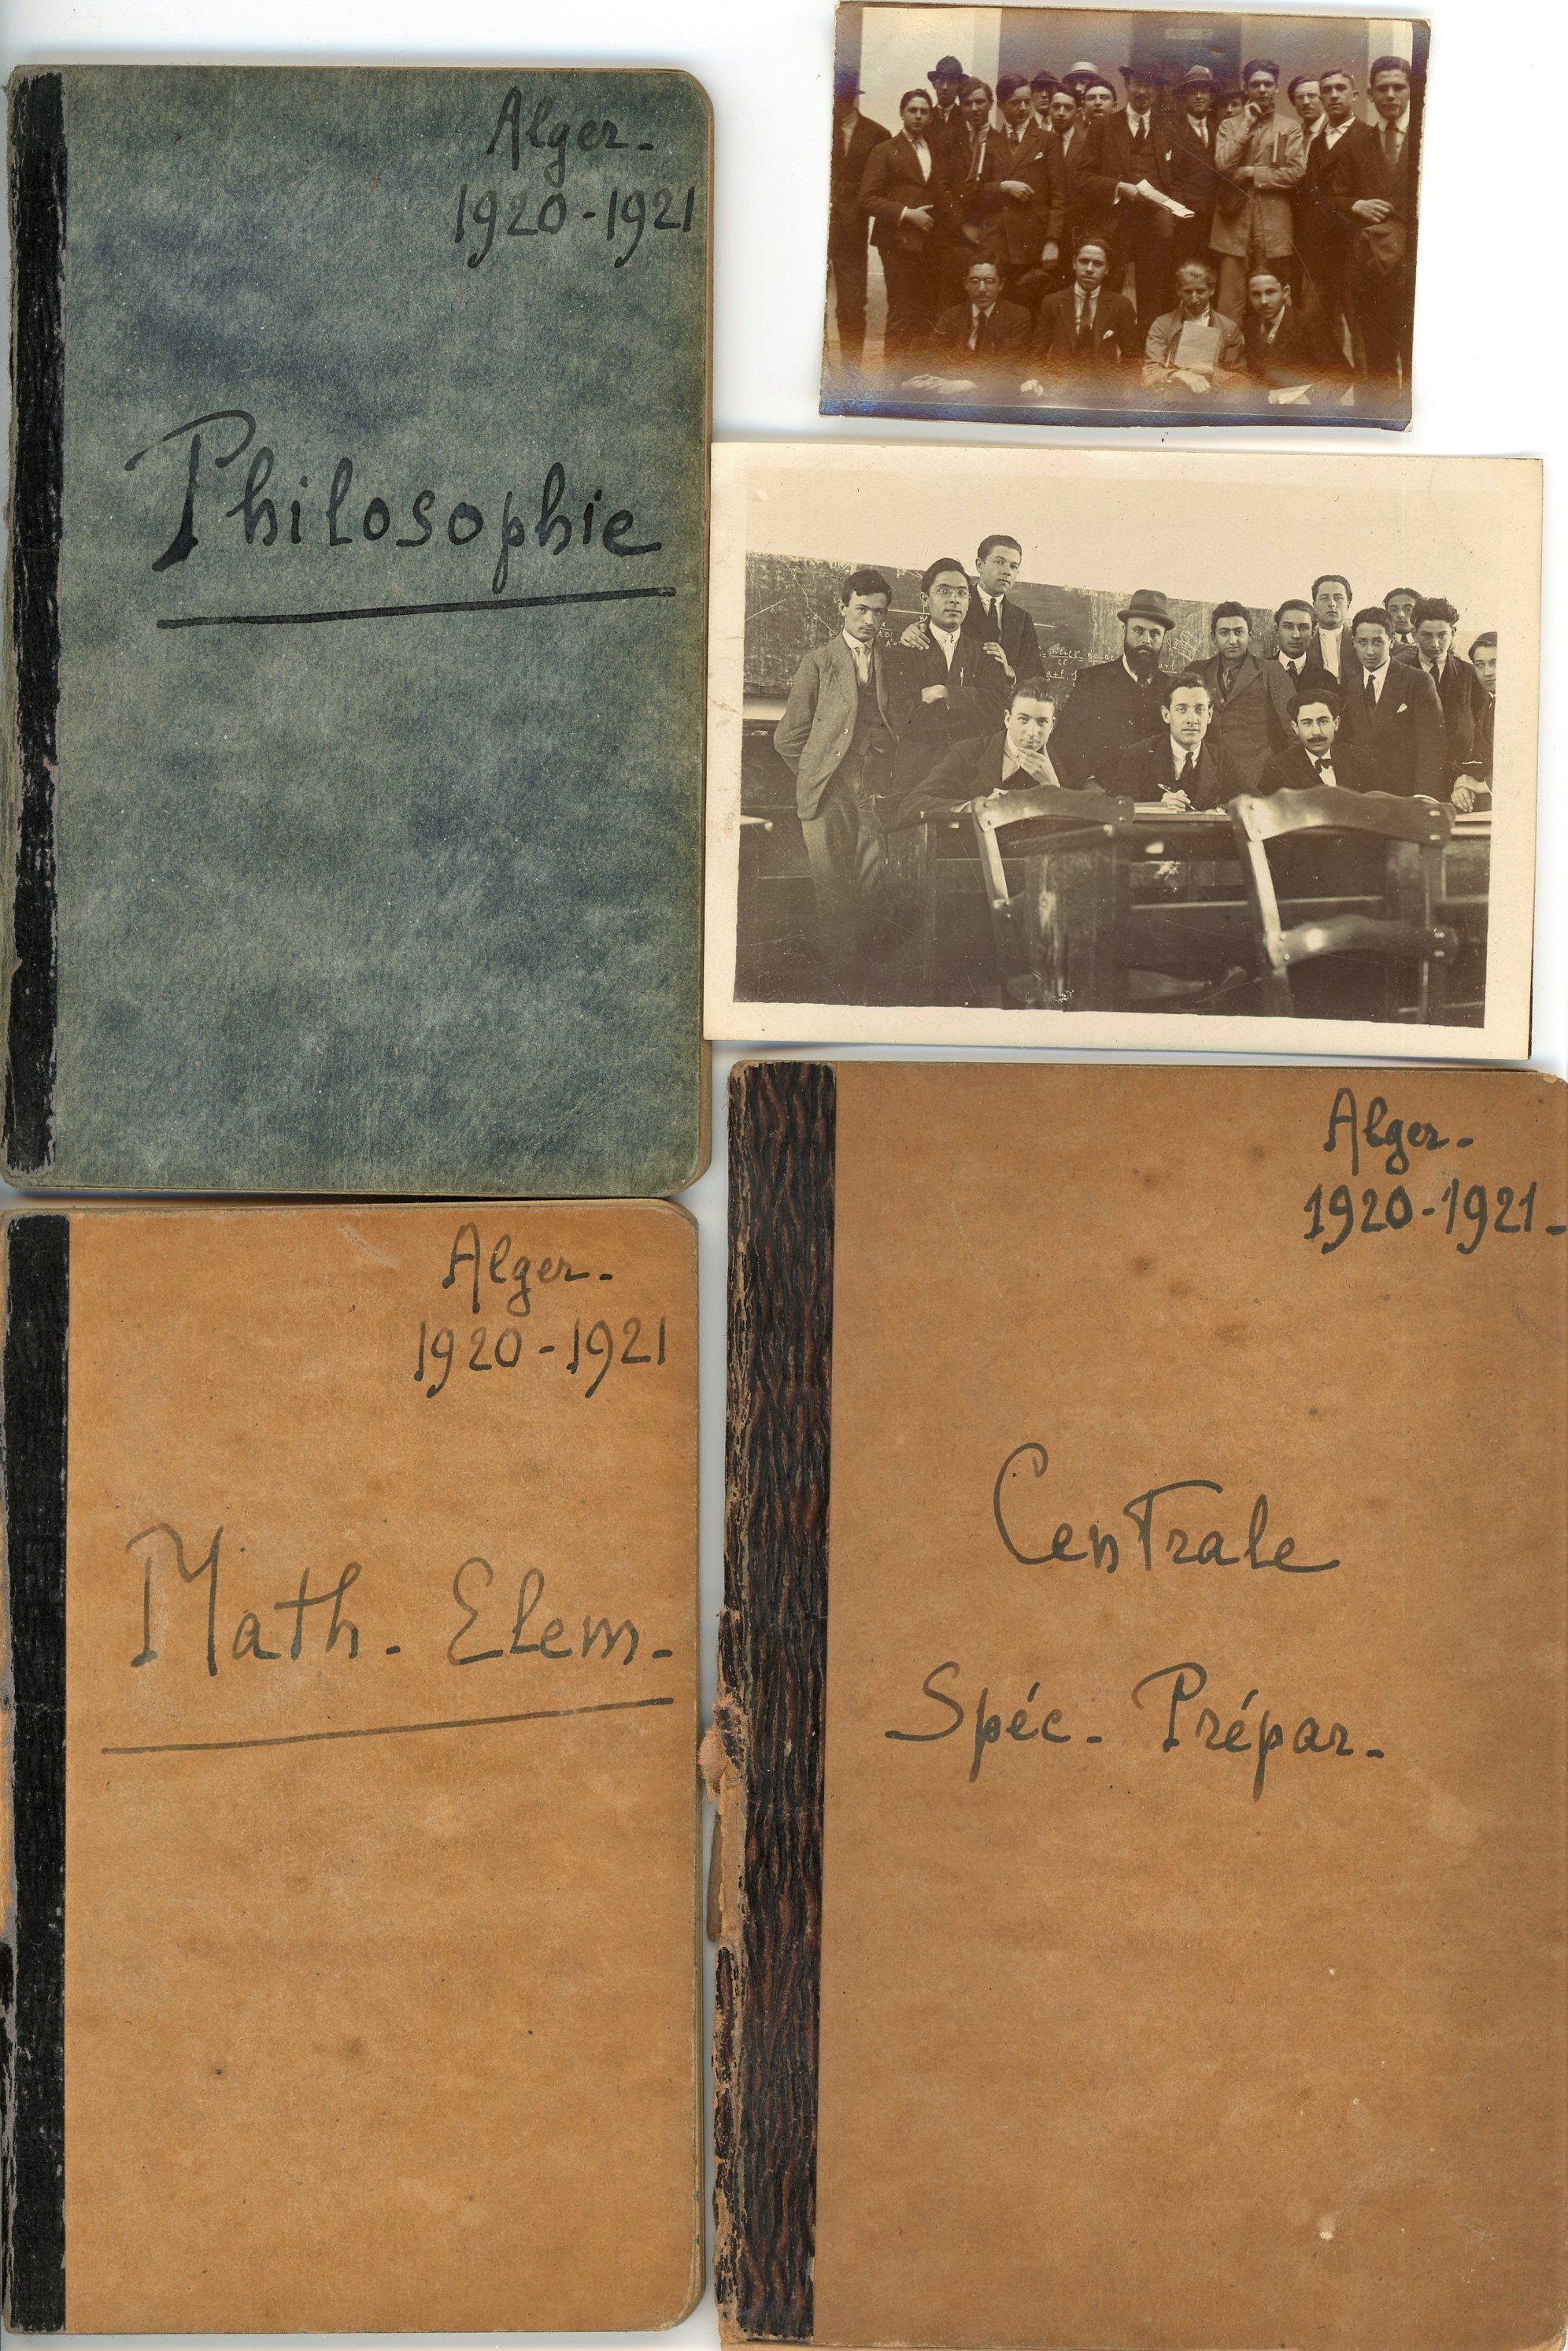 Alger-
1920-1921
Philosophie
Alger-
1920-1921
Math. Elem.
Alger-
1920-1921-
Centrale
Spéc. Prépar.